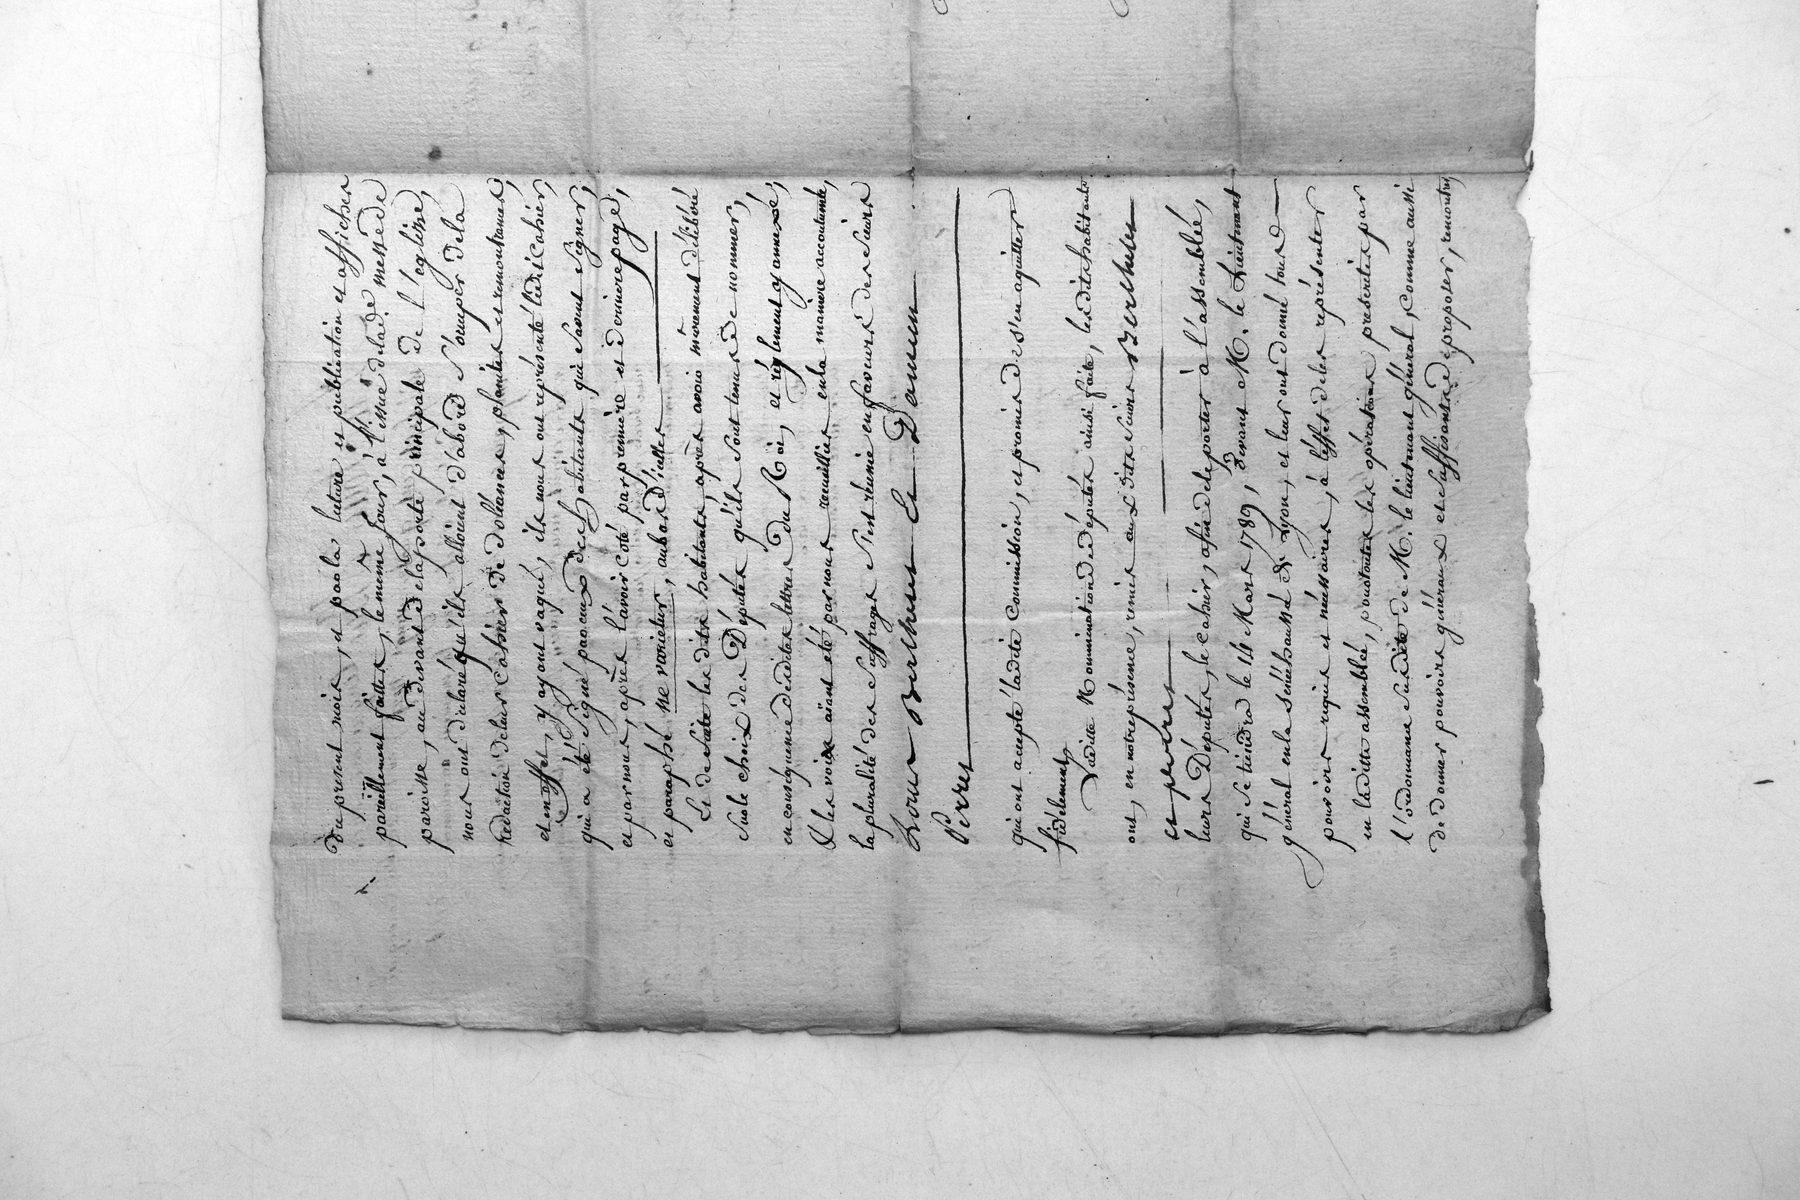 du present mois, et par la lecture et publication et affiches
pareillement faittes, le même jour, à l'issue de la ditte messe de
paroisse, au devant de la porte principale de l'eglise,
nous ont declaré qu'ils alloient d'abord s'ocuper de la
Redaction de leur Cahier de doléances, plaintes et remontrances,
et en effet, y ayant vaqué, ils nous ont représenté ledit Cahier,
qui a été signé par ceux desd. habitants qui savent signer,
et par nous, après l'avoir coté par premiere et derniere page,
et paraphé ne varietur, au bas d'icelles
Et de suite les dits habitants, après avoir mûrement déliberé
sur le choix des Députés qu'ils sont tenus de nommer,
en conséquence desdites lettres du Roi, et réglement y annexé,
Et les voix aïant été par nous recueillies en la maniere accoutumée,
la pluralité des suffrages s'est réunie en faveur des sieurs
Berthus Et Damien
Perres
qui ont accepté ladite commission, et promis de s'en aquitter
fidelement
Ladite Nomination des députés ainsi faite, lesdits habitants
ont, en notre présence, remis aux dits sieurs Berthus
et perres
leurs Députés, le Cahier, afin de le porter à l'assemblée,
qui se tiendra le 14 Mars 1789, devant M. le Lieutenant
général en la sénéchaussée de Lyon, et leur ont donné tous
pouvoirs requis et nécessaires, à l'effet de les représenter
en laditte assemblée, pour toutes les opérations prescrites par
l'ordonnance susdite de M. le lieutenant général, comme aussi
de donner pouvoirs généraux et suffisants de proposer, remontrer,